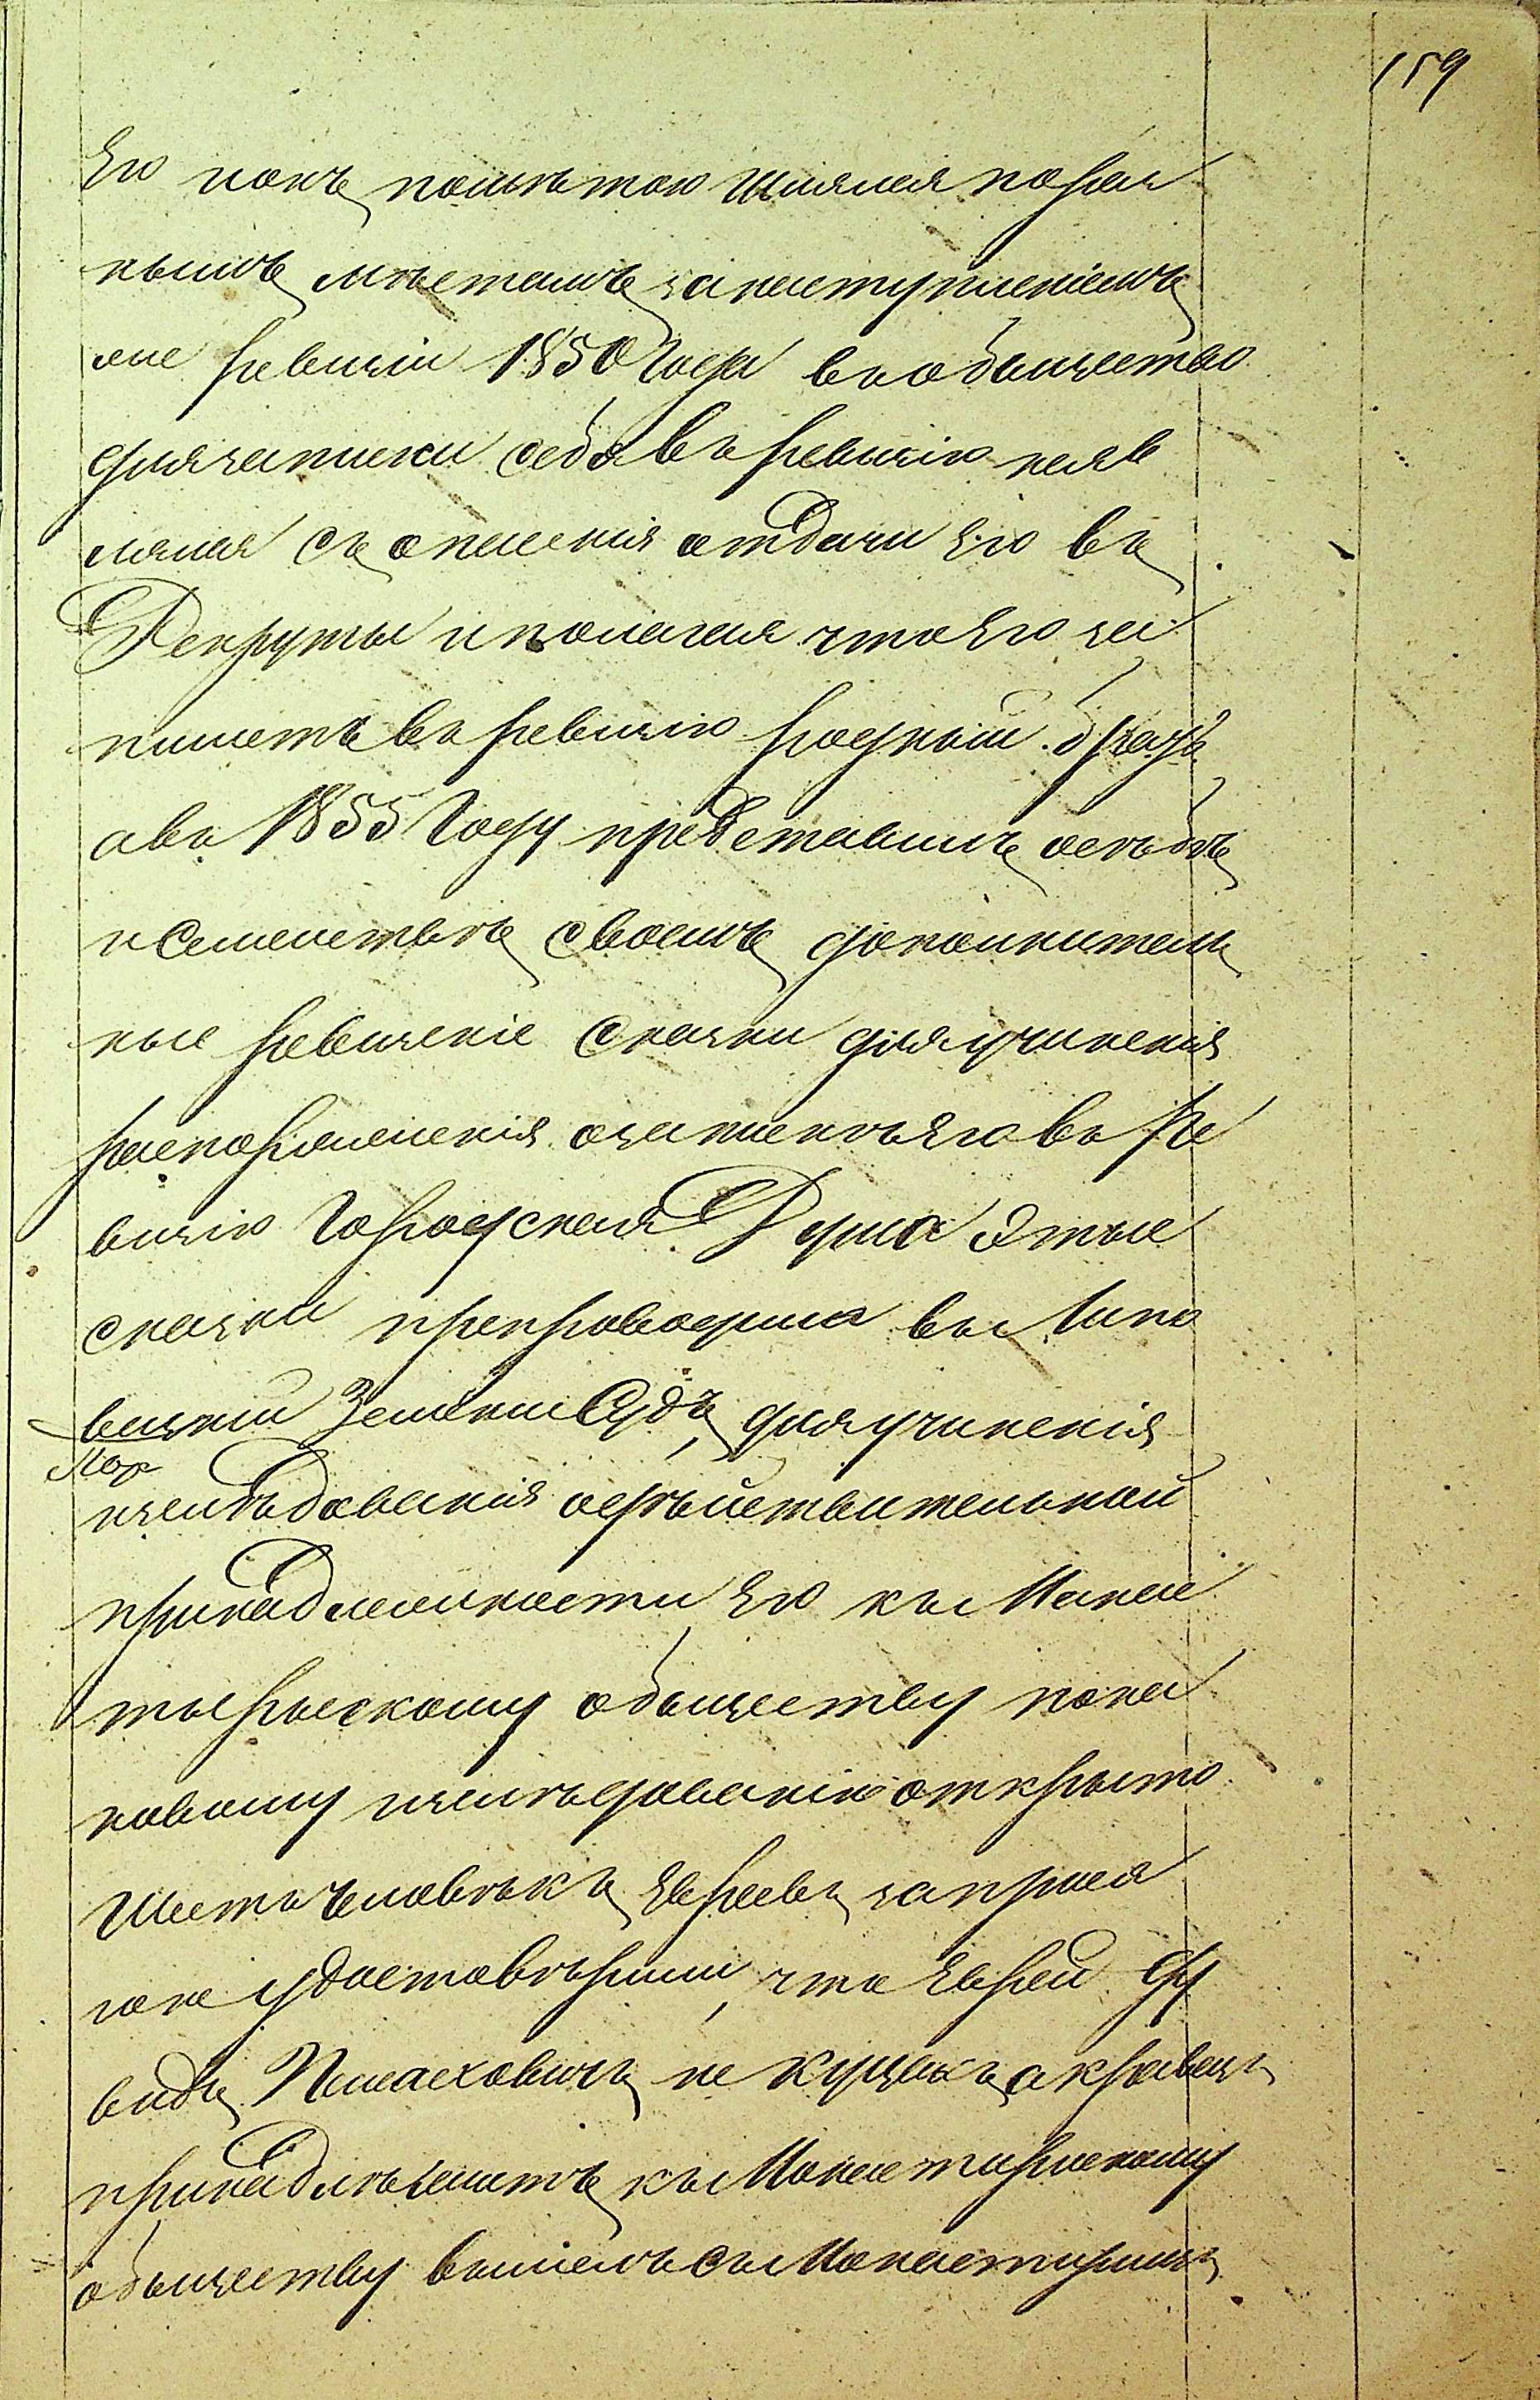 159
его нокъ польтою шлялся по раз
нымъ местамъ занаступленіемъ
же ревизіи 1850 Года въ общество
для записки себя въ ревизію неяв
лялся съ опасенія отдачи его въ
Рекруты и полагая что его за
пишетъ въ ревизію родный братъ
а въ 1855 Году представилъ о себѣ
и семействѣ своемъ дополнитель
ные ревизскіе сказки для учиненія
распоряженія о запискѣ его въ ре
визію Городская Дума этые
сказки препроводила въ Липо
вецкій Земскій Судъ, для учиненія
изслѣдованія о дѣйствительной
принадлежности его къ Манас
тырыскому обществу по ка
ковому изслѣдованію открыто
Шесть человѣкъ Евреевъ за прися
гою удостовѣрили, что Еврей Да
видъ Пинасховичъ не Куцакъ а кравецъ
принадлѣжитъ къ Монастирискому
обществу вышелъ съ Монастирищъ